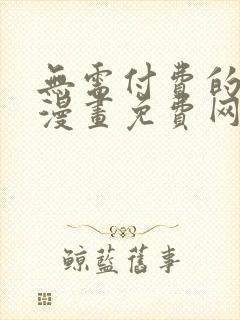 無需付費的
漫畫免費网
鲸藍舊事